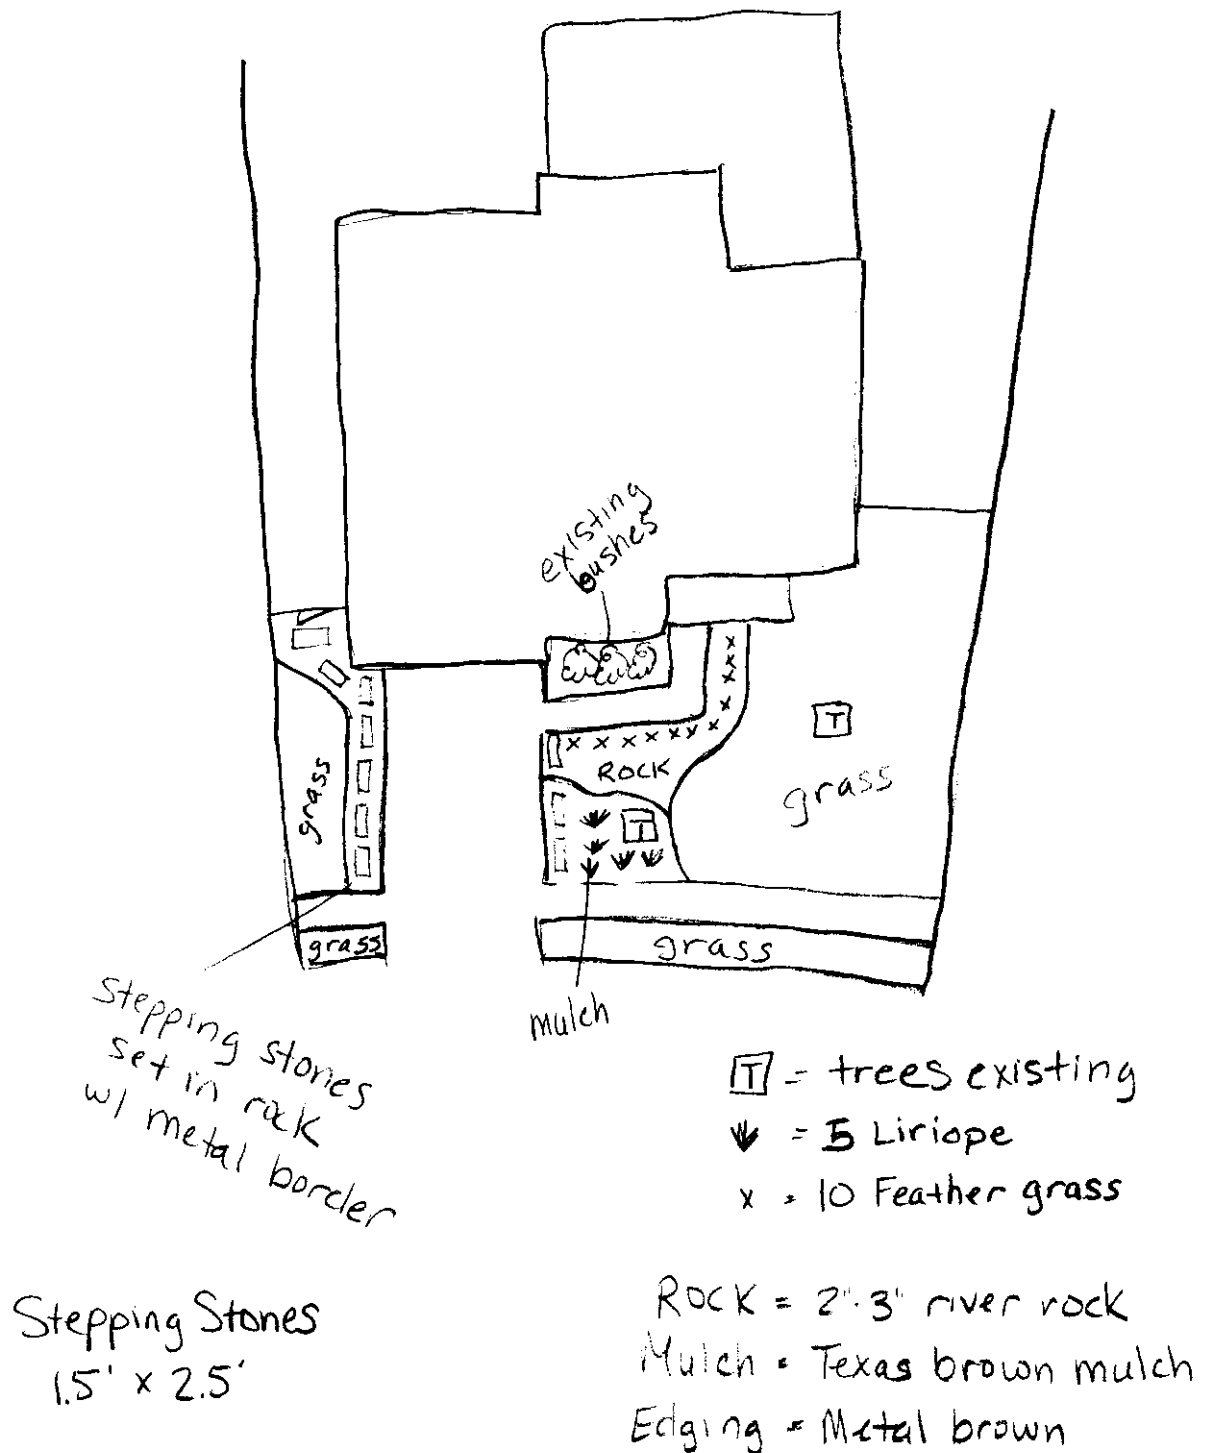 existing
bushes
T
grass
ROCK
grass
T
grass
grass
Stepping stones
set in rock
w/ metal border
mulch
T = trees existing
= 5 Liriope
x = 10 Feather grass
Stepping Stones
1.5' x 2.5'
ROCK = 2"-3" river rock
Mulch = Texas brown mulch
Edging = Metal brown